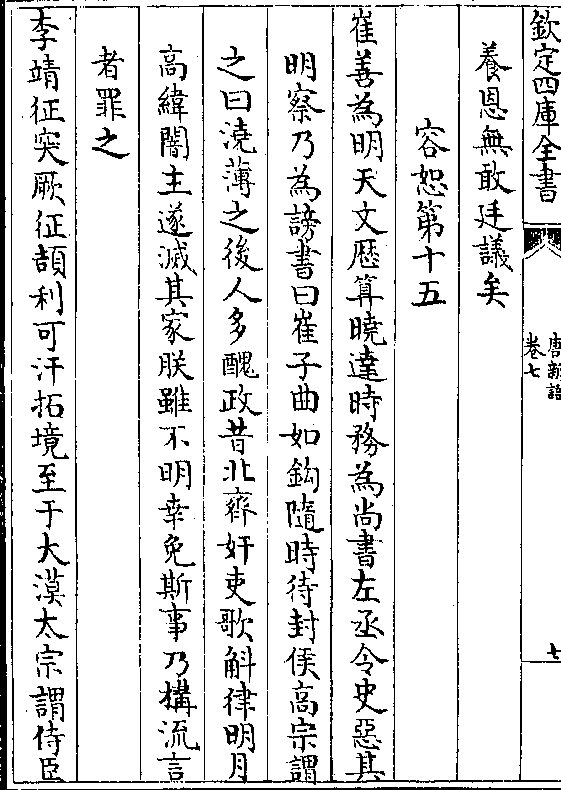 欽定四庫全書
唐新語
卷七
七
養恩無敢廷議矣
容恕第十五
崔善為明天文歴算曉達時務為尚書左丞令史惡其
明察乃為謗書曰崔子曲如鈎隨時待封侯高宗謂
之曰澆薄之後人多醜政昔北齊奸吏歌斛律明月
高緯闇主遂滅其家朕雖不明幸免斯事乃構流言
者罪之
李靖征突厥征頡利可汗拓境至于大漠太宗謂侍臣